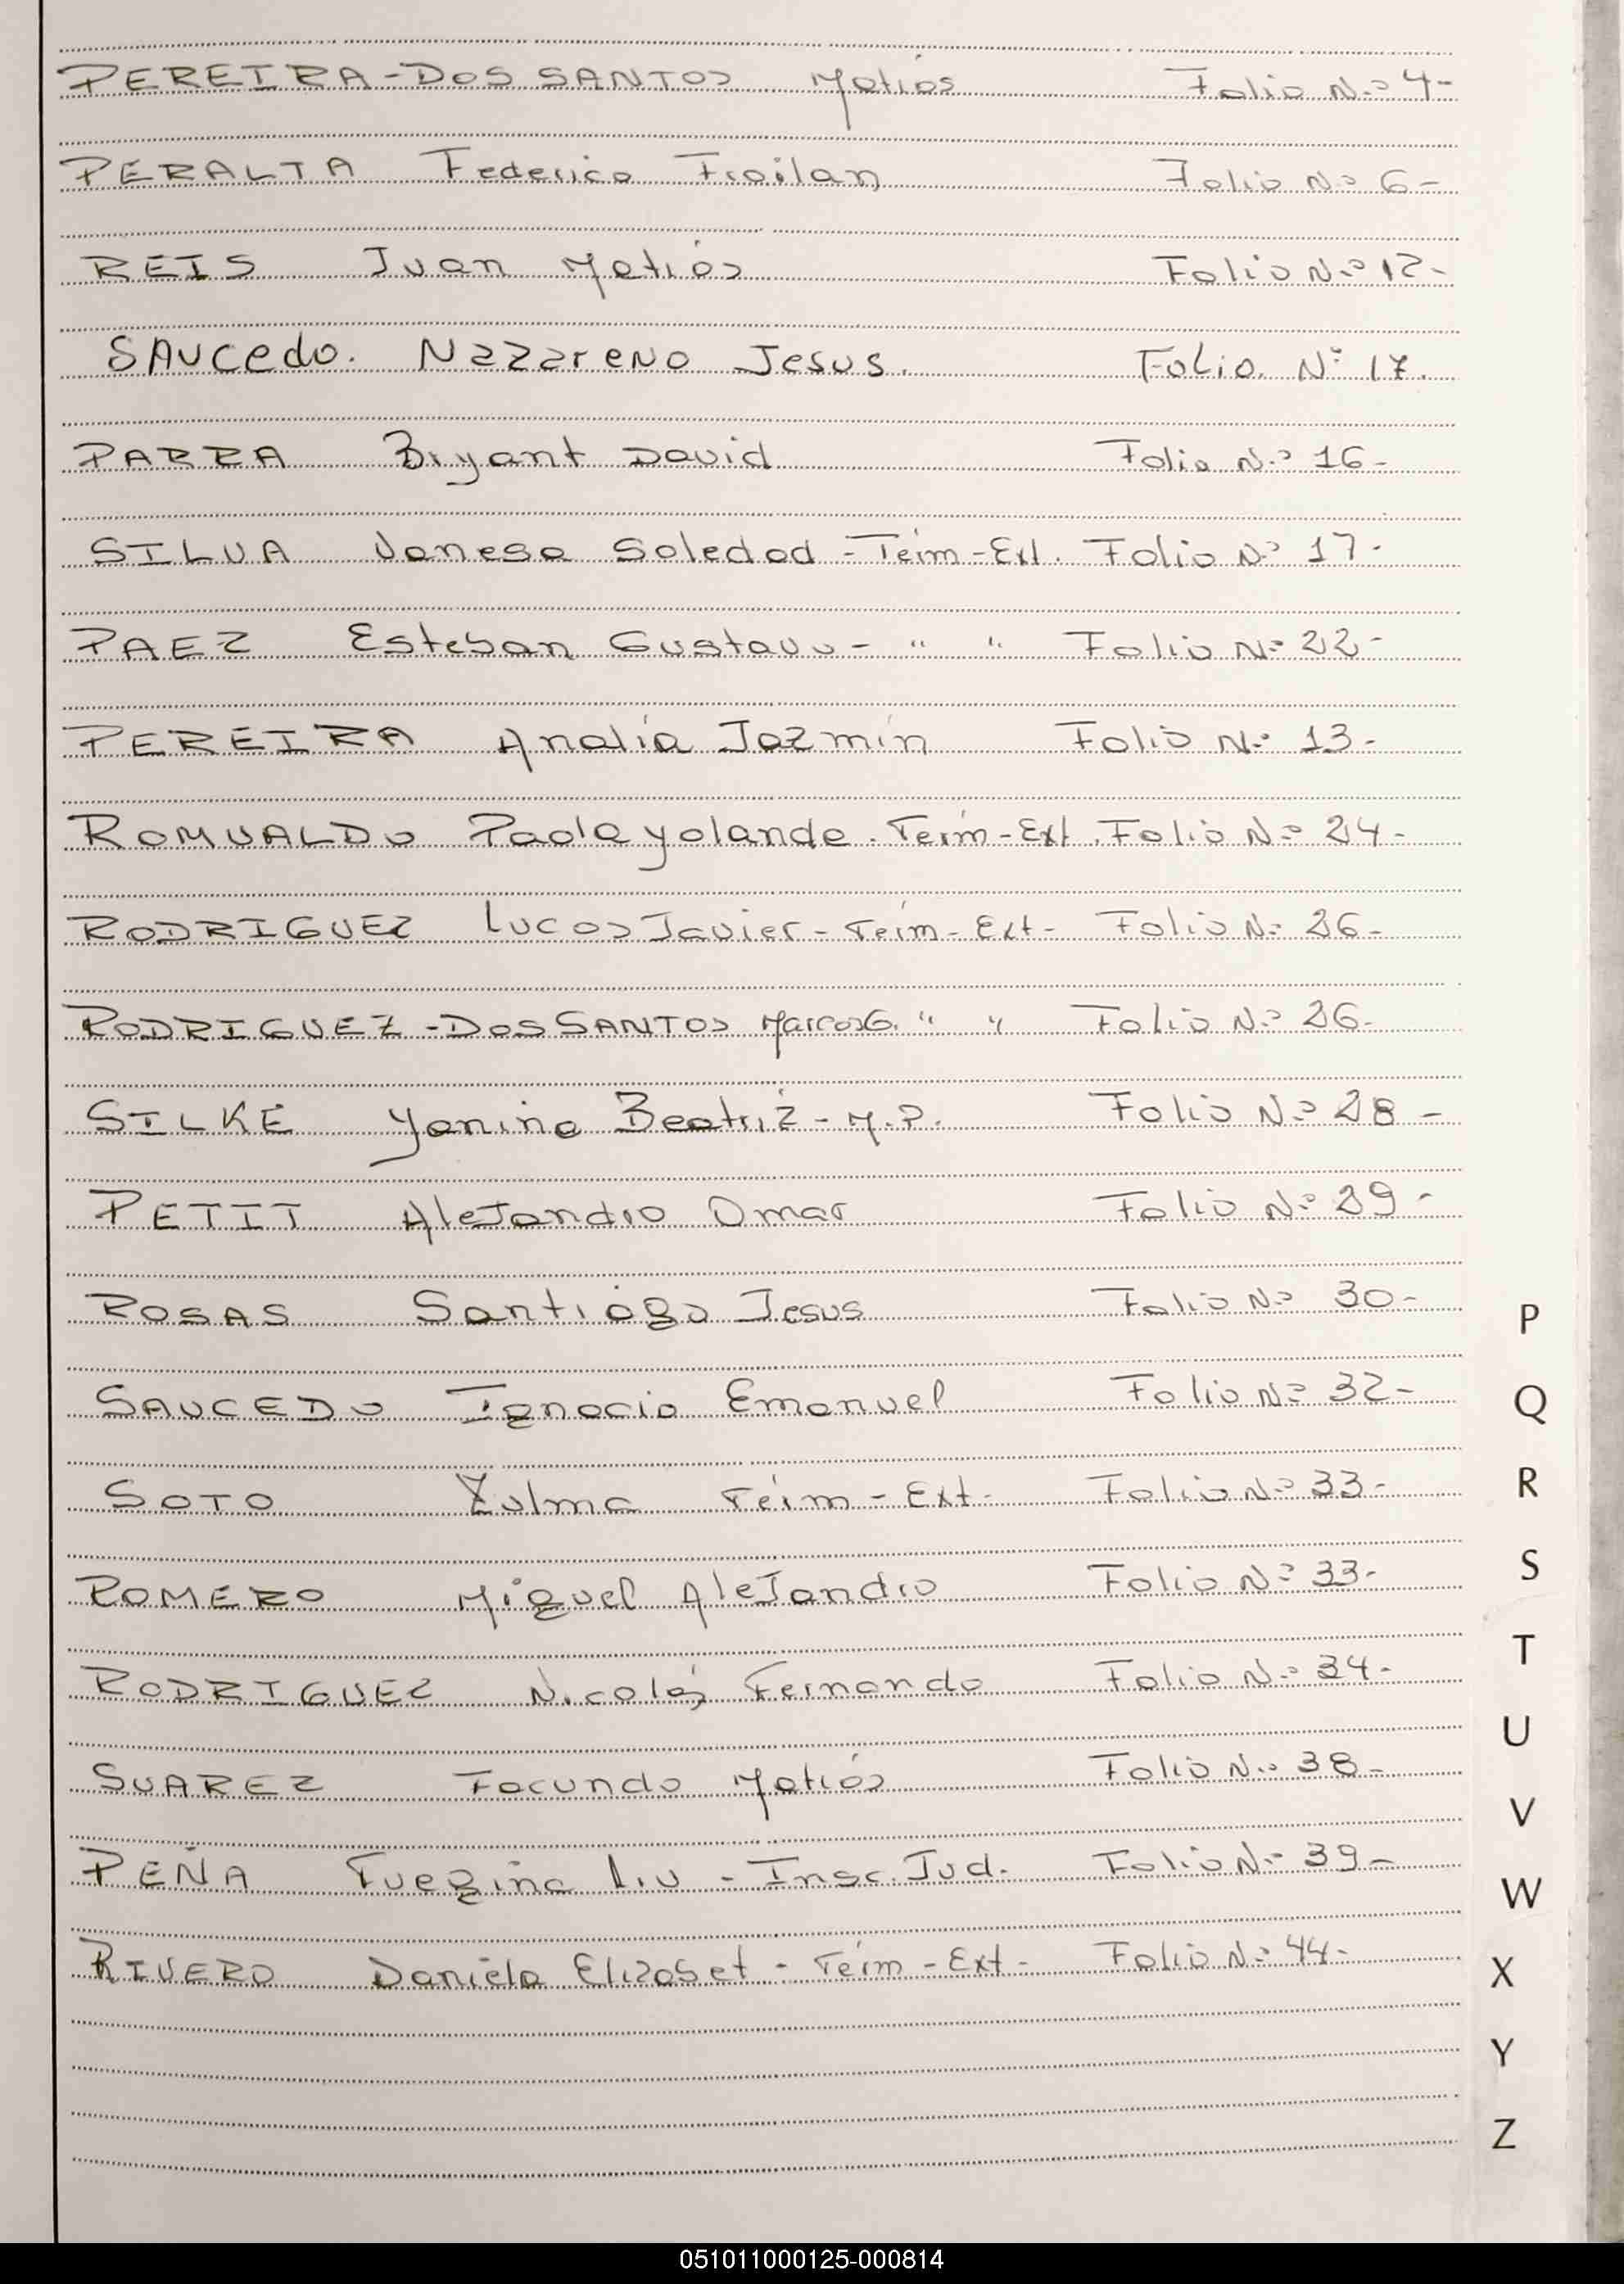 PEREIRA-DOS SANTOS Matías Folio N.º 4-
PERALTA Federico Froilan Folio N.º 6-
REIS Juan Matías Folio N.º 12-
SAUcedo. Nazareno Jesus. Folio. Nº 17.
PARRA Bryant David Folio N.º 16-
SILVA Vanesa Soledad - Térm-Ext. Folio Nº 17-
PAEZ Esteban Gustavo - " " Folio Nº 22-
PEREIRA Analía Jazmín Folio N.º 13-
ROMUALDO Paola yolanda. Térm-Ext. Folio Nº 24-
RODRIGUEZ Lucas Javier - Térm-Ext- Folio Nº 26-
RODRIGUEZ-DOS SANTOS Marcos G. " " Folio N.º 26-
SILKE Yanina Beatriz - M.P. Folio N.º 28-
PETIT Alejandro Omar Folio N.º 29-
ROSAS Santiago Jesus Folio N.º 30-
SAUCEDO Ignacio Emanuel Folio Nº 32-
SOTO Zulma Térm-Ext- Folio Nº 33-
ROMERO Miguel Alejandro Folio Nº 33-
RODRIGUEZ Nicolás Fernando Folio N.º 34-
SUAREZ Facundo Matías Folio N.º 38-
PEÑA Fuegina Liv - Insc. Jud. Folio N.º 39-
RIVERO Daniela Elizabet - Térm-Ext- Folio N.º 44-
P
Q
R
S
T
U
V
W
X
Y
Z
051011000125-000814